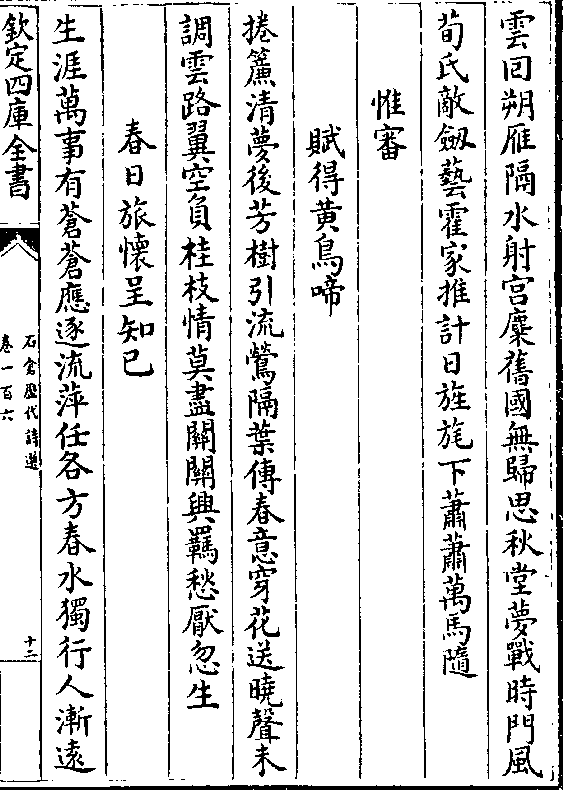 雲回朔雁隔水射宫麋舊國無歸思秋堂夢戰時門風
荀氏敵劔藝霍家推計日旌旄下蕭蕭萬馬隨
惟審
賦得黄鳥啼
捲簾清夢後芳樹引流鶯隔葉傳春意穿花送曉聲未
調雲路翼空負桂枝情莫盡關關興羈愁厭忽生
春日旅懷呈知己
生涯萬事有蒼蒼應逐流萍任各方春水獨行人漸逺
欽定四庫全書
石倉歴代詩選
卷一百六
十二